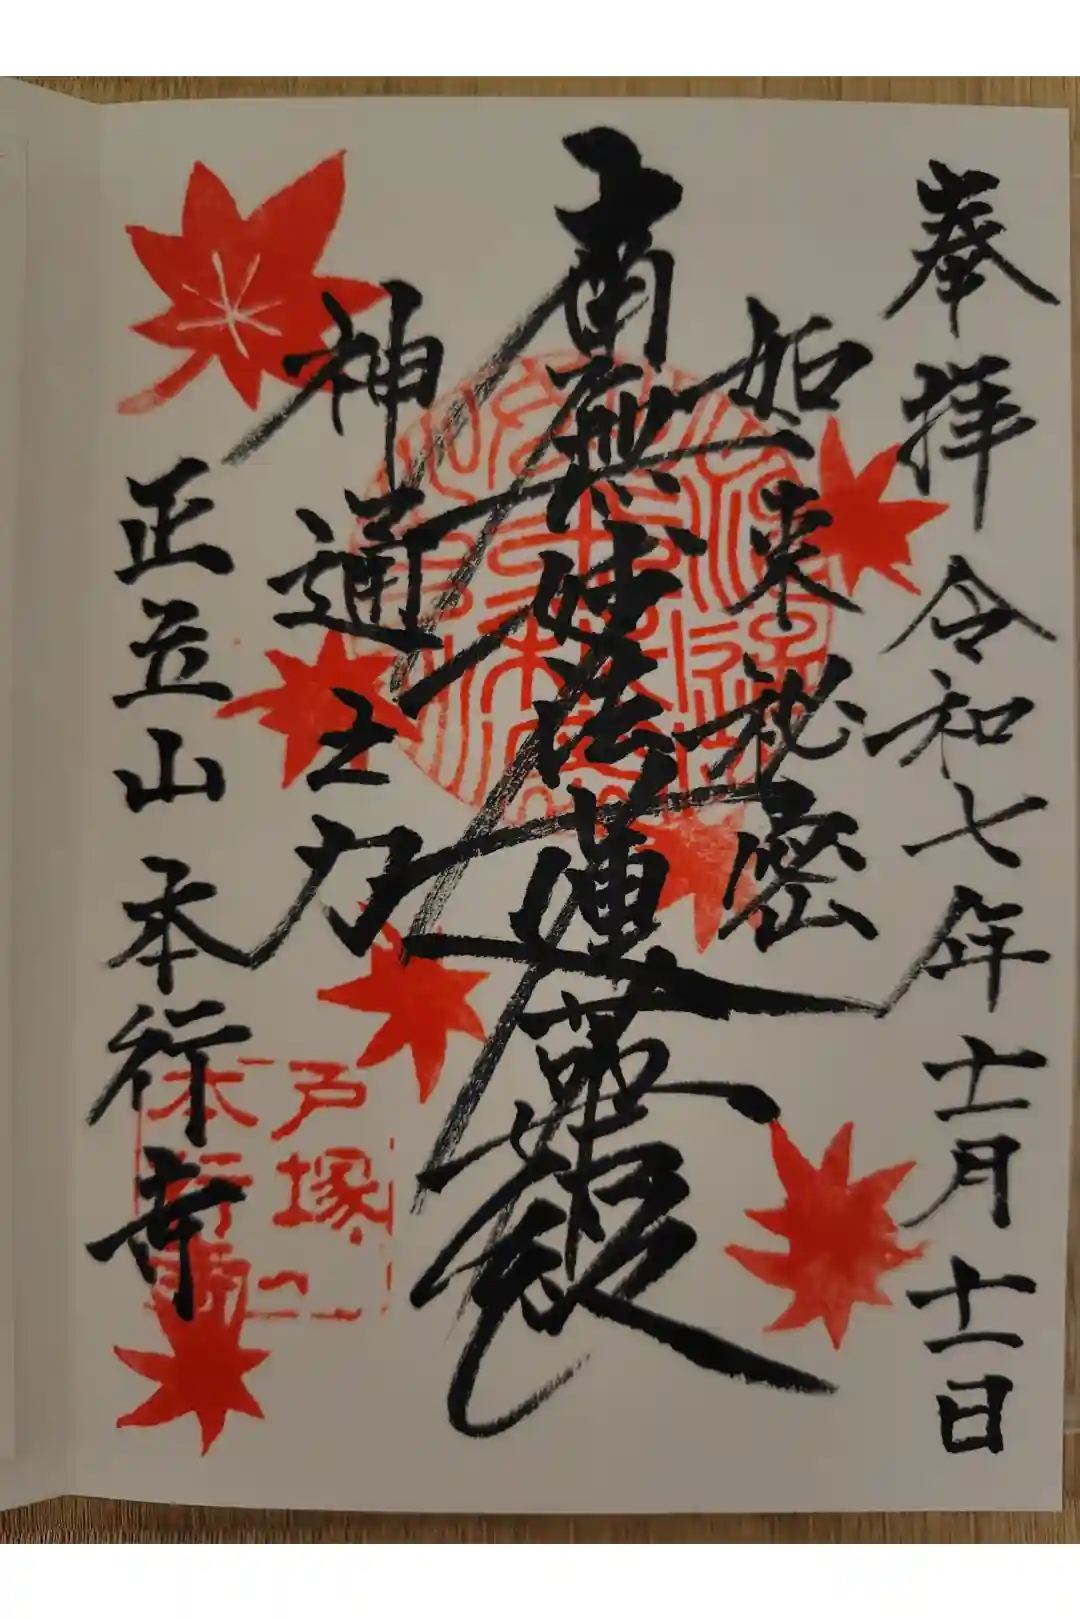 奉拝 令和七年十一月十一日
如来秘密
南無妙法蓮華経
神通之力
正立山 本行寺
戸塚山
本行寺